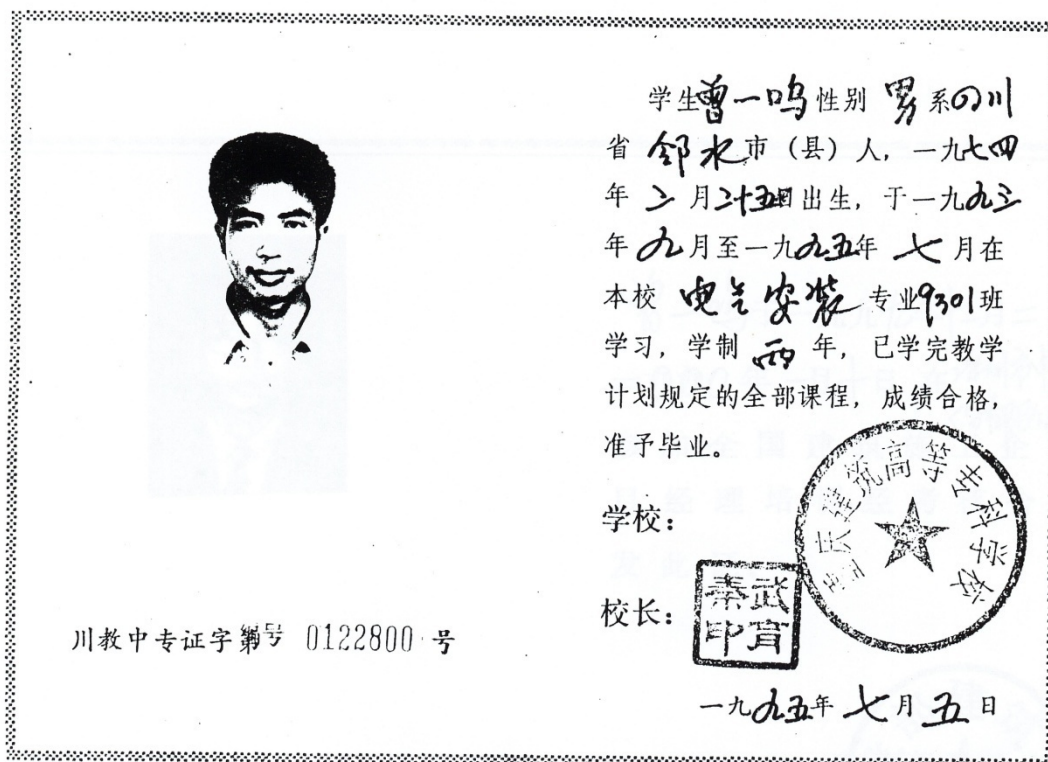 学生曾一鸣性别 男 系四川
省 邻水市（县）人，一九七四
年 二 月二十五日出生，于一九九三
年 九月至一九九五年 七 月在
本校 电气安装 专业9301班
学习，学制 两 年，已学完教学
计划规定的全部课程，成绩合格，
准予毕业。
学校：
重庆建筑高等专科学校
校长：
武育
秦印
川教中专证字第号 0122800 号
一九九五年 七月 五 日